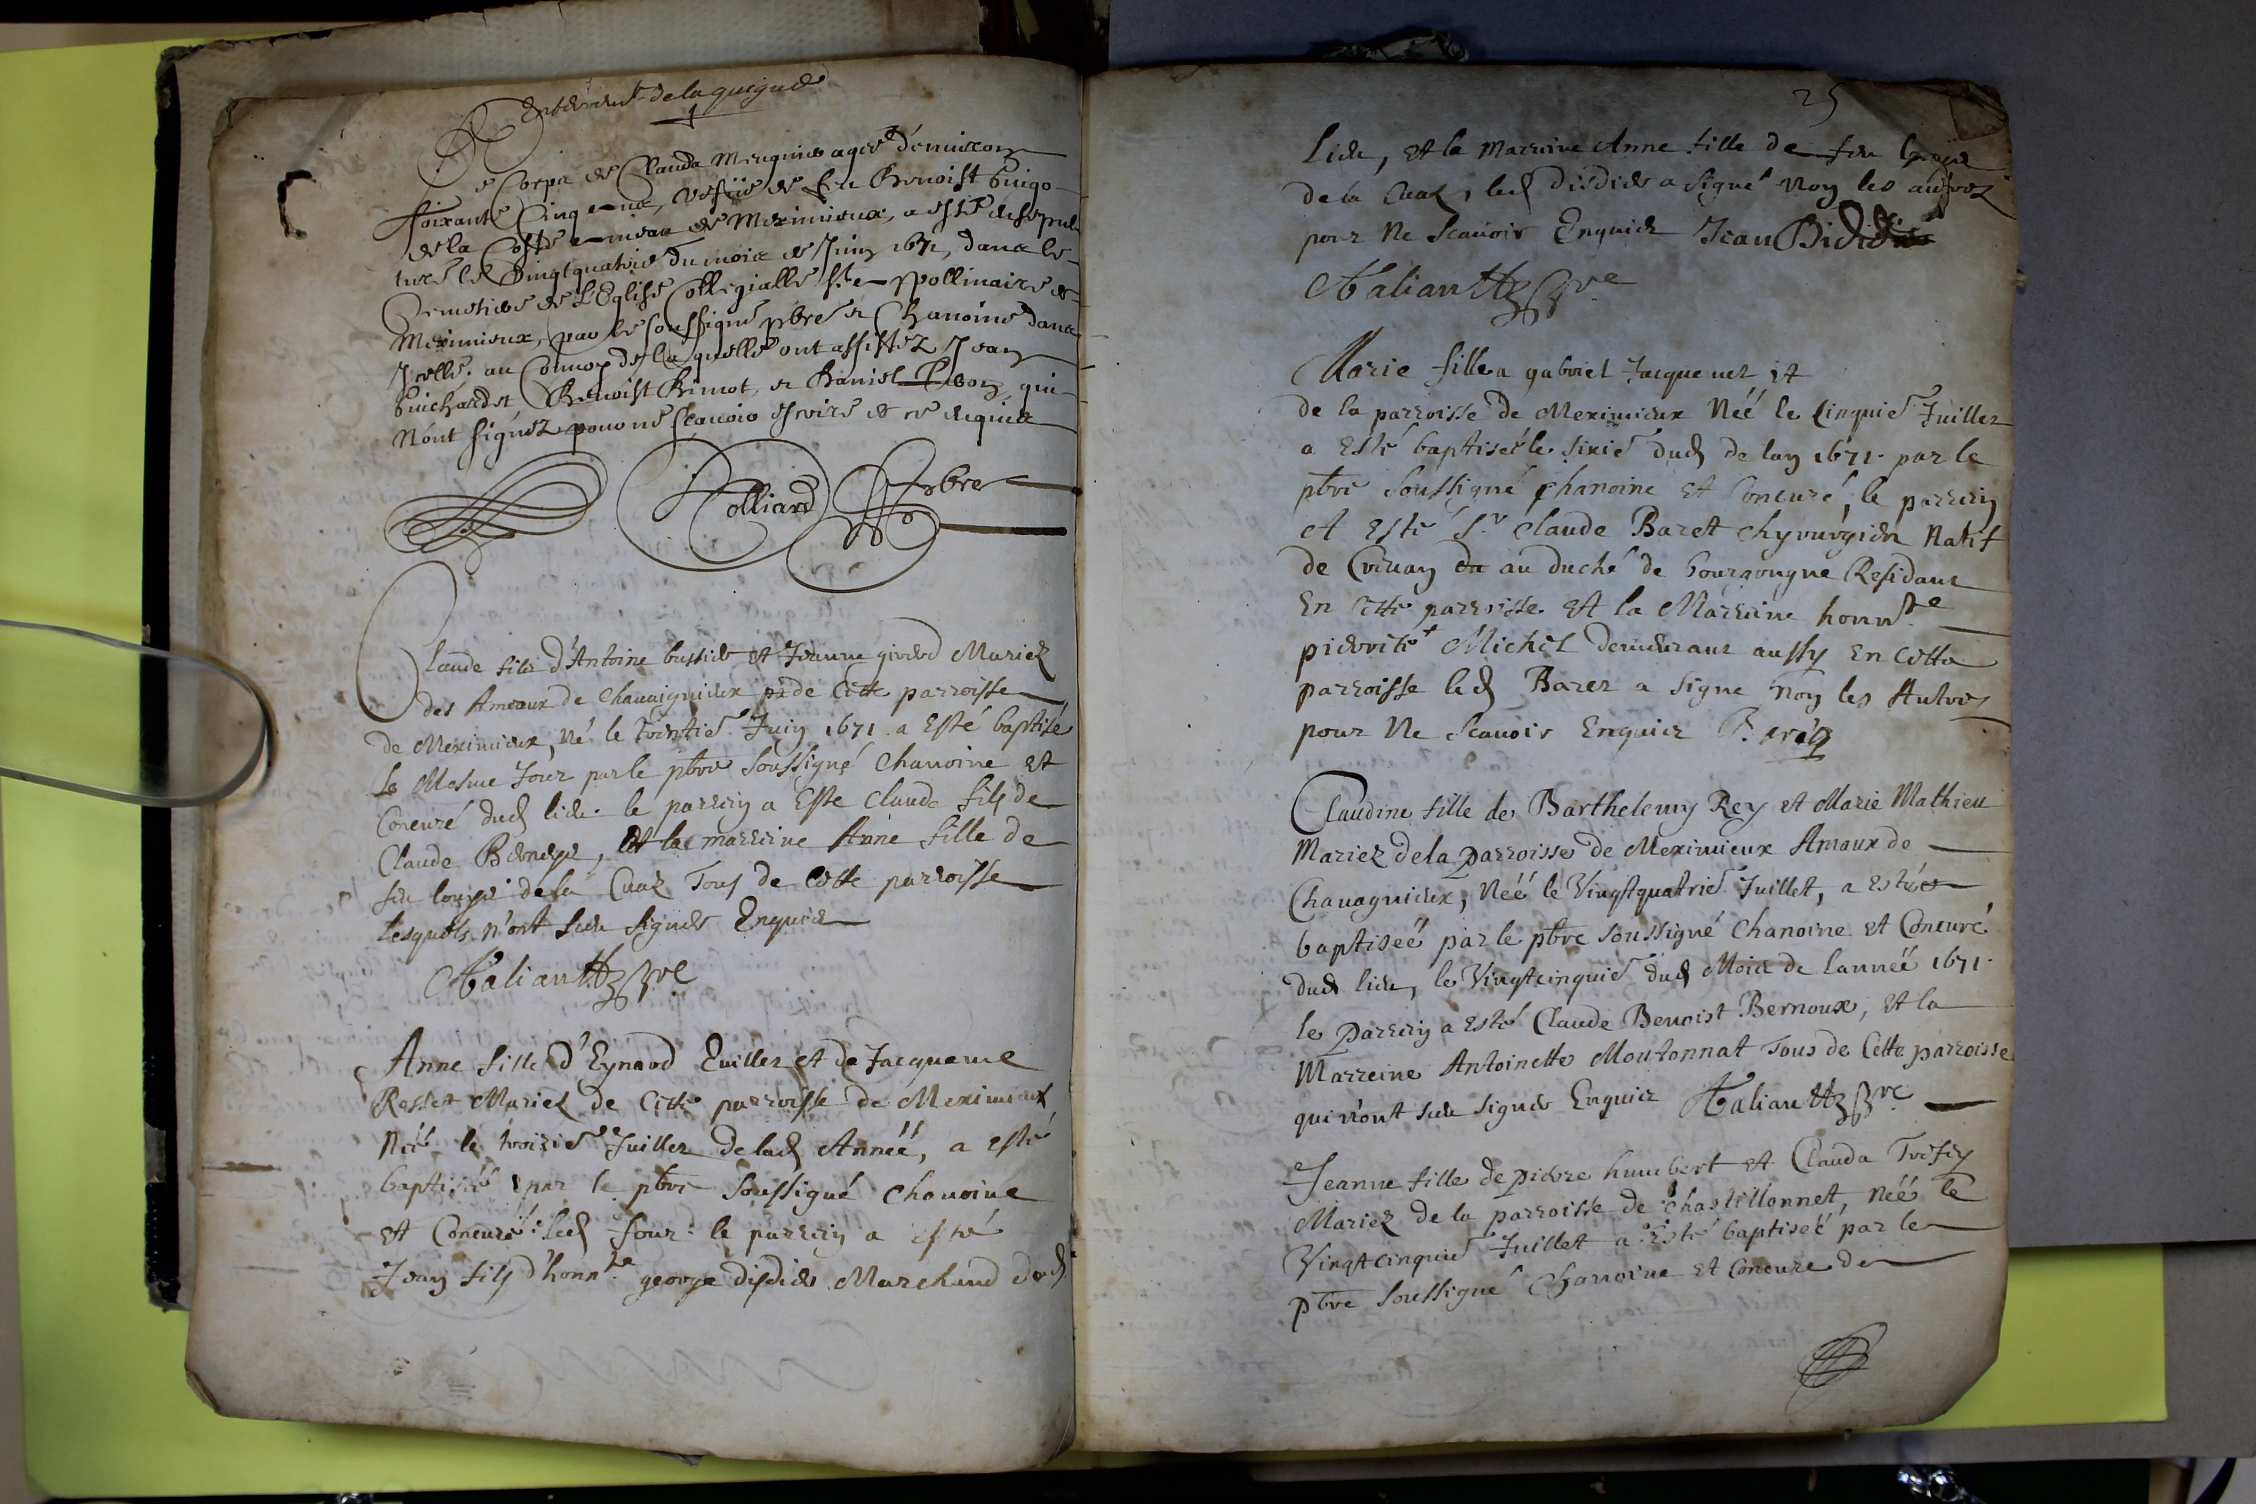 Enterrement de la guigue
Le Corps de Clauda Meuguins agée d'environ
soixante Cinq ans, vefve de feu Benoist Guigo
de la Coste ameau de Meximieux, a esté ensepul
turé le Vingtquatrie du mois de Juin 1671, dans le
Cemetiere de l'Eglise Collegialle St Appollinaire de
Meximieux, par le soussigné pbre et Chanoine dans
Jcelle. au Convoy de laquelle ont assistez Jean
Guichardet Benoist Rimot, et Daniel qui
n'ont signez pour ne scavoir escrire de ce enquis
Rolliard pbre
Claude fils d'Antoine bussier et Jeanne girerd Mariez
des Ameaux de Chavaignieux de Cette parroisse
de Meximieux, né le trentie Juin 1671 a Esté baptisé
Le Mesme Jour par le pbre soussigné Chanoine et
Concuré dud lieu. le parrein a Esté Claude fils de
Claude , et la marreine Anne fille de
feu louys de la Cuaz Tous de Cette parroisse
lesquels n'ont sceu signer Enquis
Taliantz pbre
Anne fille d'Eynard Cuillez et de Jacqueme
Rosset Mariez de Cette parroisse de Meximieux
Néé le troisie Juillez de lad Annéé, a esté
baptiséé par le pbre soussigné chanoine
et Concuré led Jour: le parrein a esté
Jean fils d'honnte george disdier Marchand dud
25
lieu, et la Marreine Anne fille de feu louys
de la Cuaz, led disdier a signé Non les autres
pour Ne Scavoir Enquis Jean Didier
Taliantz pbre
Marie fille a gabriel Jacquemez et
de la parroisse de Meximieux Néé le Cinquie Juillez
a Esté baptiséé le sixie dud de lan 1671. par le
pbre soussigné chanoine et Concuré, le parrein
A Esté Sr Claude Barett Chyrurgien Natif
de au duché de bourgongne Residant
En Cette parroisse et la Marreine honnte
pierrete Michel demeurant aussy En Cette
parroisse led Barez a signe Non les Autres
pour Ne Scavoir Enquis
Claudine fille de Barthelemy Rey et Marie Mathieu
Mariez de la parroisse de Meximieux Amaux de
Chavagnieux, Néé le Vingtquatrie Juillet, a Esté
baptiséé par le pbre soussigné Chanoine et Concuré
dud lieu, le Vingtcinquie dud Mois de lannéé 1671.
le parrein a Esté Claude Benoist Bernoux, et la
Marreine Antoinette Moutonnat Tous de Cette parroisse
qui n'ont sceu signer Enquis Taliantz pbre
Jeanne fille de pierre humbert et Clauda
Mariez de la parroisse de Chastillonnet, Néé le
Vingtcinquie Juillet a Esté baptiséé par le
pbre soussigné Chanoine et Concure de